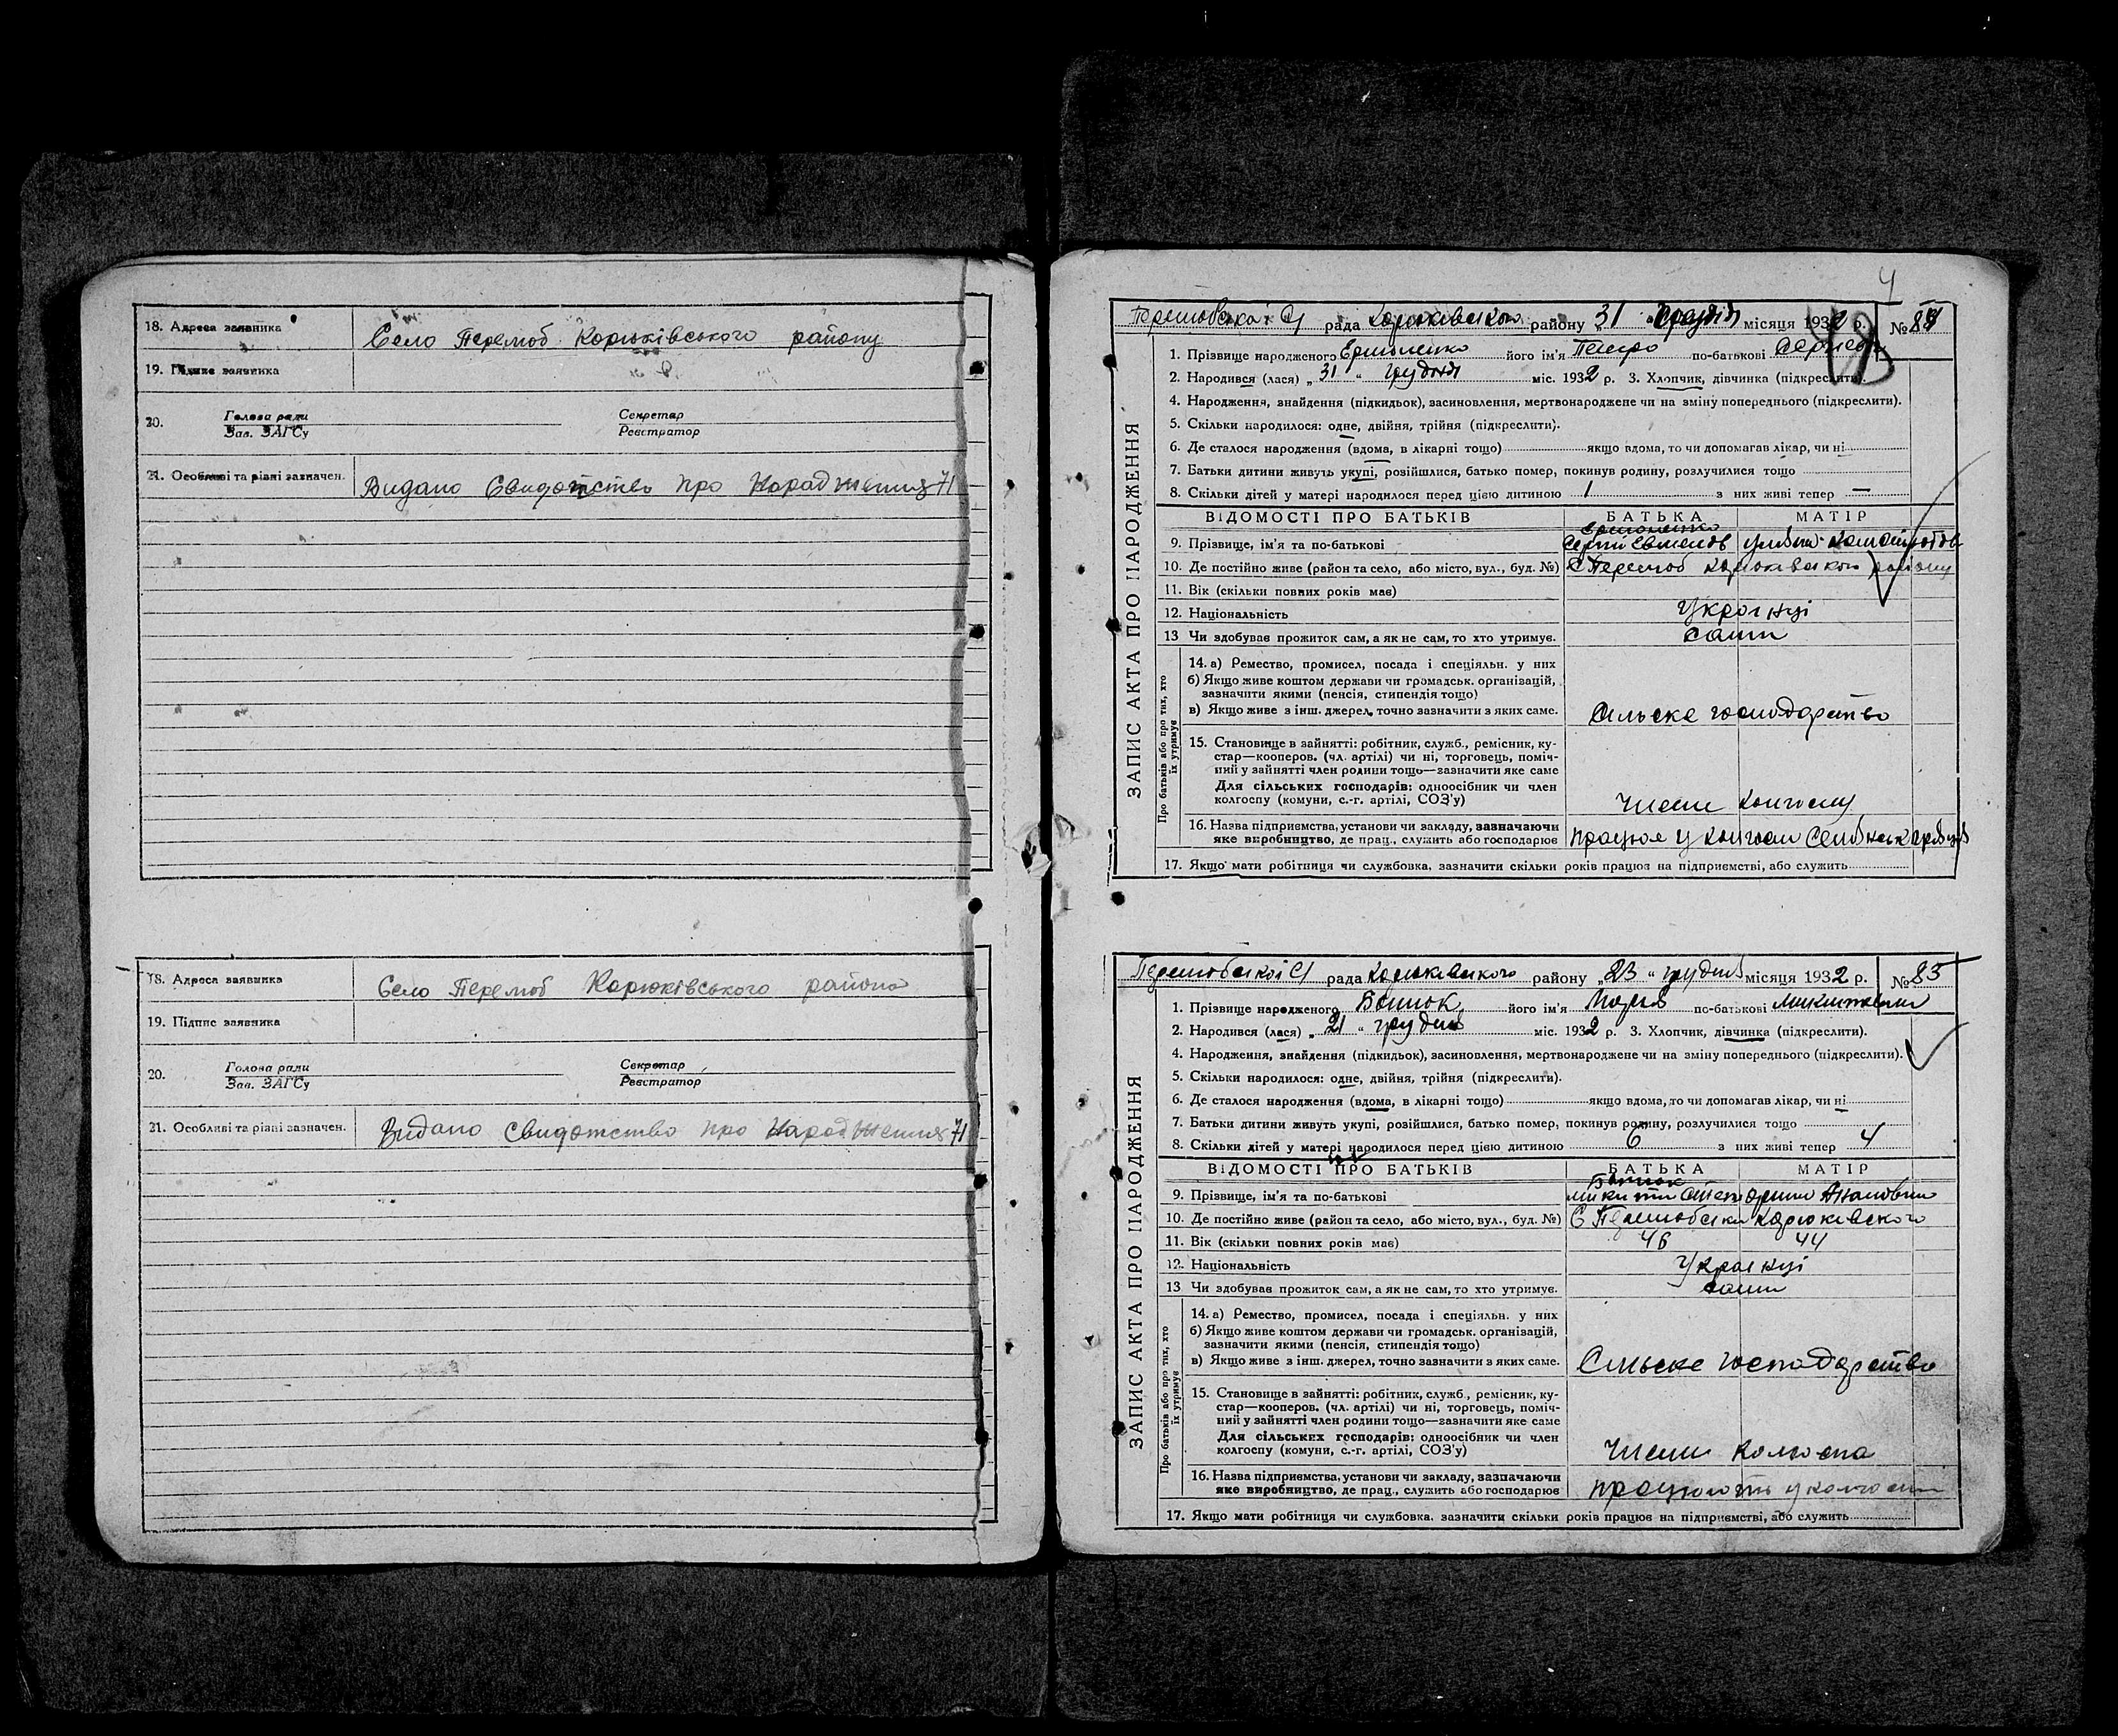 18. Адреса заявника Село Перемоб Корюківського району
19. Підпис заявника
20. Голова ради Секретар
Зав. ЗАГСу Реєстратор
21. Особливі та різні зазначен. Видано Свидотство про Народження 71
18. Адреса заявника Село Перемоб Корюківського района
19. Підпис заявника
20. Голова ради Секретар
Зав. ЗАГСу Реєстратор
21. Особливі та різні зазначен. Видано Свидотство про Народження 71
4
рада Корюківського району „31 “ грудня місяця 1932 р. №
ЗАПИС АКТА ПРО НАРОДЖЕННЯ
1. Прізвище народженого Ермоленко його ім'я Петро по-батькові
2. Народився (лася) „ 31 “ грудня міс. 1932 р. 3. Хлопчик, дівчинка (підкреслити).
4. Народження, знайдення (підкидьок), засиновлення, мертвонароджене чи на зміну попереднього (підкреслити).
5. Скільки народилося: одне, двійня, трійня (підкреслити).
6. Де сталося народження (вдома, в лікарні тощо) якщо вдома, то чи допомагав лікар, чи ні
7. Батьки дитини живуть укупі, розійшлися, батько помер, покинув родину, розлучилися тощо
8. Скільки дітей у матері народилося перед цією дитиною 1 з них живі тепер —
ВІДОМОСТІ ПРО БАТЬКІВ БАТЬКА МАТІР
Ермоленко
9. Прізвище, ім'я та по-батькові
10. Де постійно живе (район та село, або місто, вул., буд. №) С Перемоб Корюківського району
11. Вік (скільки повних років має)
12. Національність Українці
13 Чи здобуває прожиток сам, а як не сам, то хто утримує. сами
Про батьків або про тих, хто
їх утримує
14. а) Ремество, промисел, посада і спеціяльн. у них
б) Якщо живе коштом держави чи громадськ. організацій,
зазначити якими (пенсія, стипендія тощо)
в) Якщо живе з інш. джерел, точно зазначити з яких саме. Сільске господарство
15. Становище в зайнятті: робітник, служб., ремісник, ку-
стар—кооперов. (чл. артілі) чи ні, торговець, поміч-
ний у зайнятті член родини тощо—зазначити яке саме
Для сільських господарів: одноосібник чи член
колгоспу (комуни, с.-г. артілі, СОЗ'у) Члени
16. Назва підприємства, установи чи закладу, зазначаючи
яке виробництво, де прац., служить або господарює
17. Якщо мати робітниця чи службовка, зазначити скільки років працює на підприємстві, або служить
рада Корюківского району „23 “ грудня місяця 1932 р. №85
ЗАПИС АКТА ПРО НАРОДЖЕННЯ
1. Прізвище народженого його ім'я Марія по-батькові
2. Народився (лася) „ 21 “ грудня міс. 1932 р. 3. Хлопчик, дівчинка (підкреслити).
4. Народження, знайдення (підкидьок), засиновлення, мертвонароджене чи на зміну попереднього (підкреслити).
5. Скільки народилося: одне, двійня, трійня (підкреслити).
6. Де сталося народження (вдома, в лікарні тощо) якщо вдома, то чи допомагав лікар, чи ні
7. Батьки дитини живуть укупі, розійшлися, батько помер, покинув родину, розлучилися тощо
8. Скільки дітей у матері народилося перед цією дитиною 6 з них живі тепер 4
ВІДОМОСТІ ПРО БАТЬКІВ БАТЬКА МАТІР
9. Прізвище, ім'я та по-батькові
10. Де постійно живе (район та село, або місто, вул., буд. №) Корюківского
11. Вік (скільки повних років має) 46 44
12. Національність Українці
13 Чи здобуває прожиток сам, а як не сам, то хто утримує. сами
Про батьків або про тих, хто
їх утримує
14. а) Ремество, промисел, посада і спеціяльн. у них
б) Якщо живе коштом держави чи громадськ. організацій,
зазначити якими (пенсія, стипендія тощо)
в) Якщо живе з інш. джерел, точно зазначити з яких саме. Сільске господарство
15. Становище в зайнятті: робітник, служб., ремісник, ку-
стар—кооперов. (чл. артілі) чи ні, торговець, поміч-
ний у зайнятті член родини тощо—зазначити яке саме
Для сільських господарів: одноосібник чи член
колгоспу (комуни, с.-г. артілі, СОЗ'у) Члени колгоспа
16. Назва підприємства, установи чи закладу, зазначаючи
яке виробництво, де прац., служить або господарює працюють у колгоспи
17. Якщо мати робітниця чи службовка, зазначити скільки років працює на підприємстві, або служить